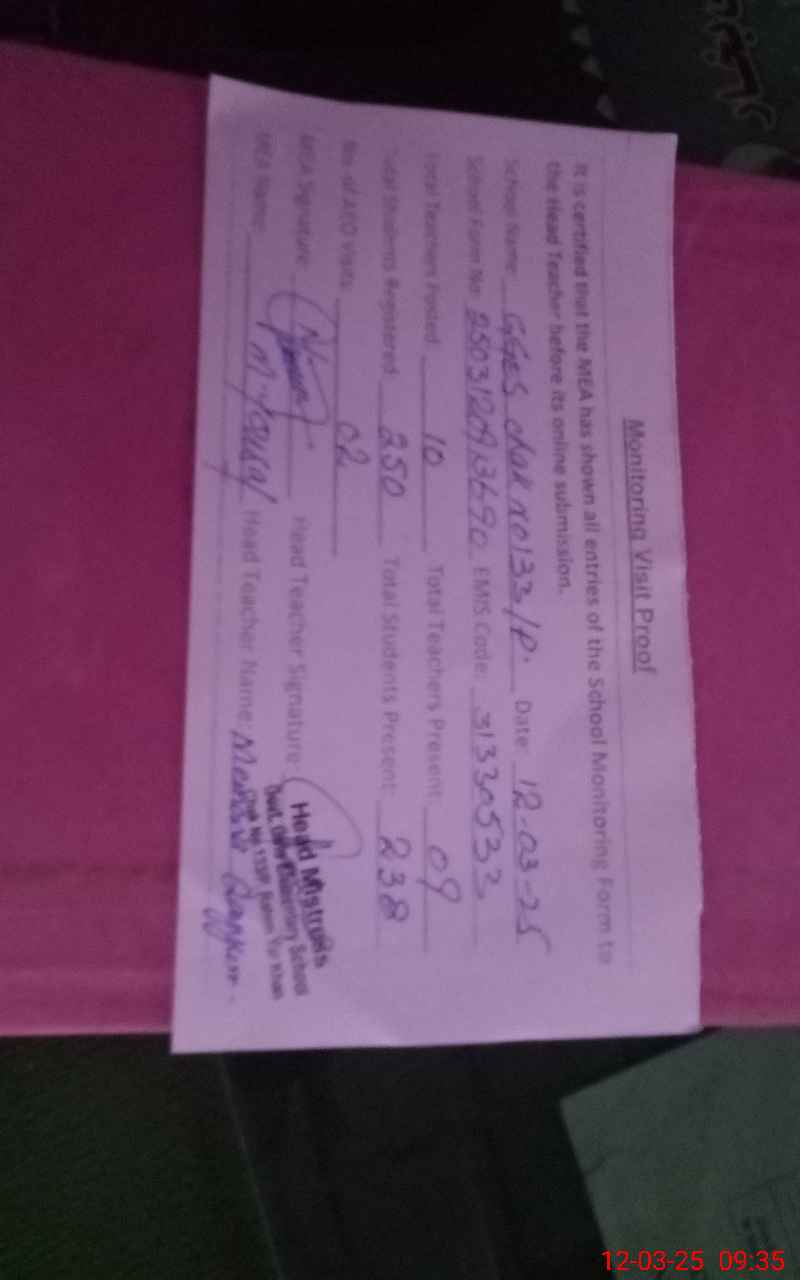 Monitoring Visit Proof
It is certified that the MEA has shown all entries of the School Monitoring Form to
the Head Teacher before its online submission.
School Name: GGES chak no 133/P. Date: 12-03-25
School Form No: EMIS Code: 31330533
Total Teachers Posted: 10 Total Teachers Present: 09
Total Students Registered: 250 Total Students Present: 238
No. of AEO Visits: 02
MEA Signature: Head Teacher Signature:
MEA Name: M. Yousaf Head Teacher Name:
Head Mistress
Govt. Elementary School
Chak No 133P Rahim Yar Khan
12-03-25 09:35